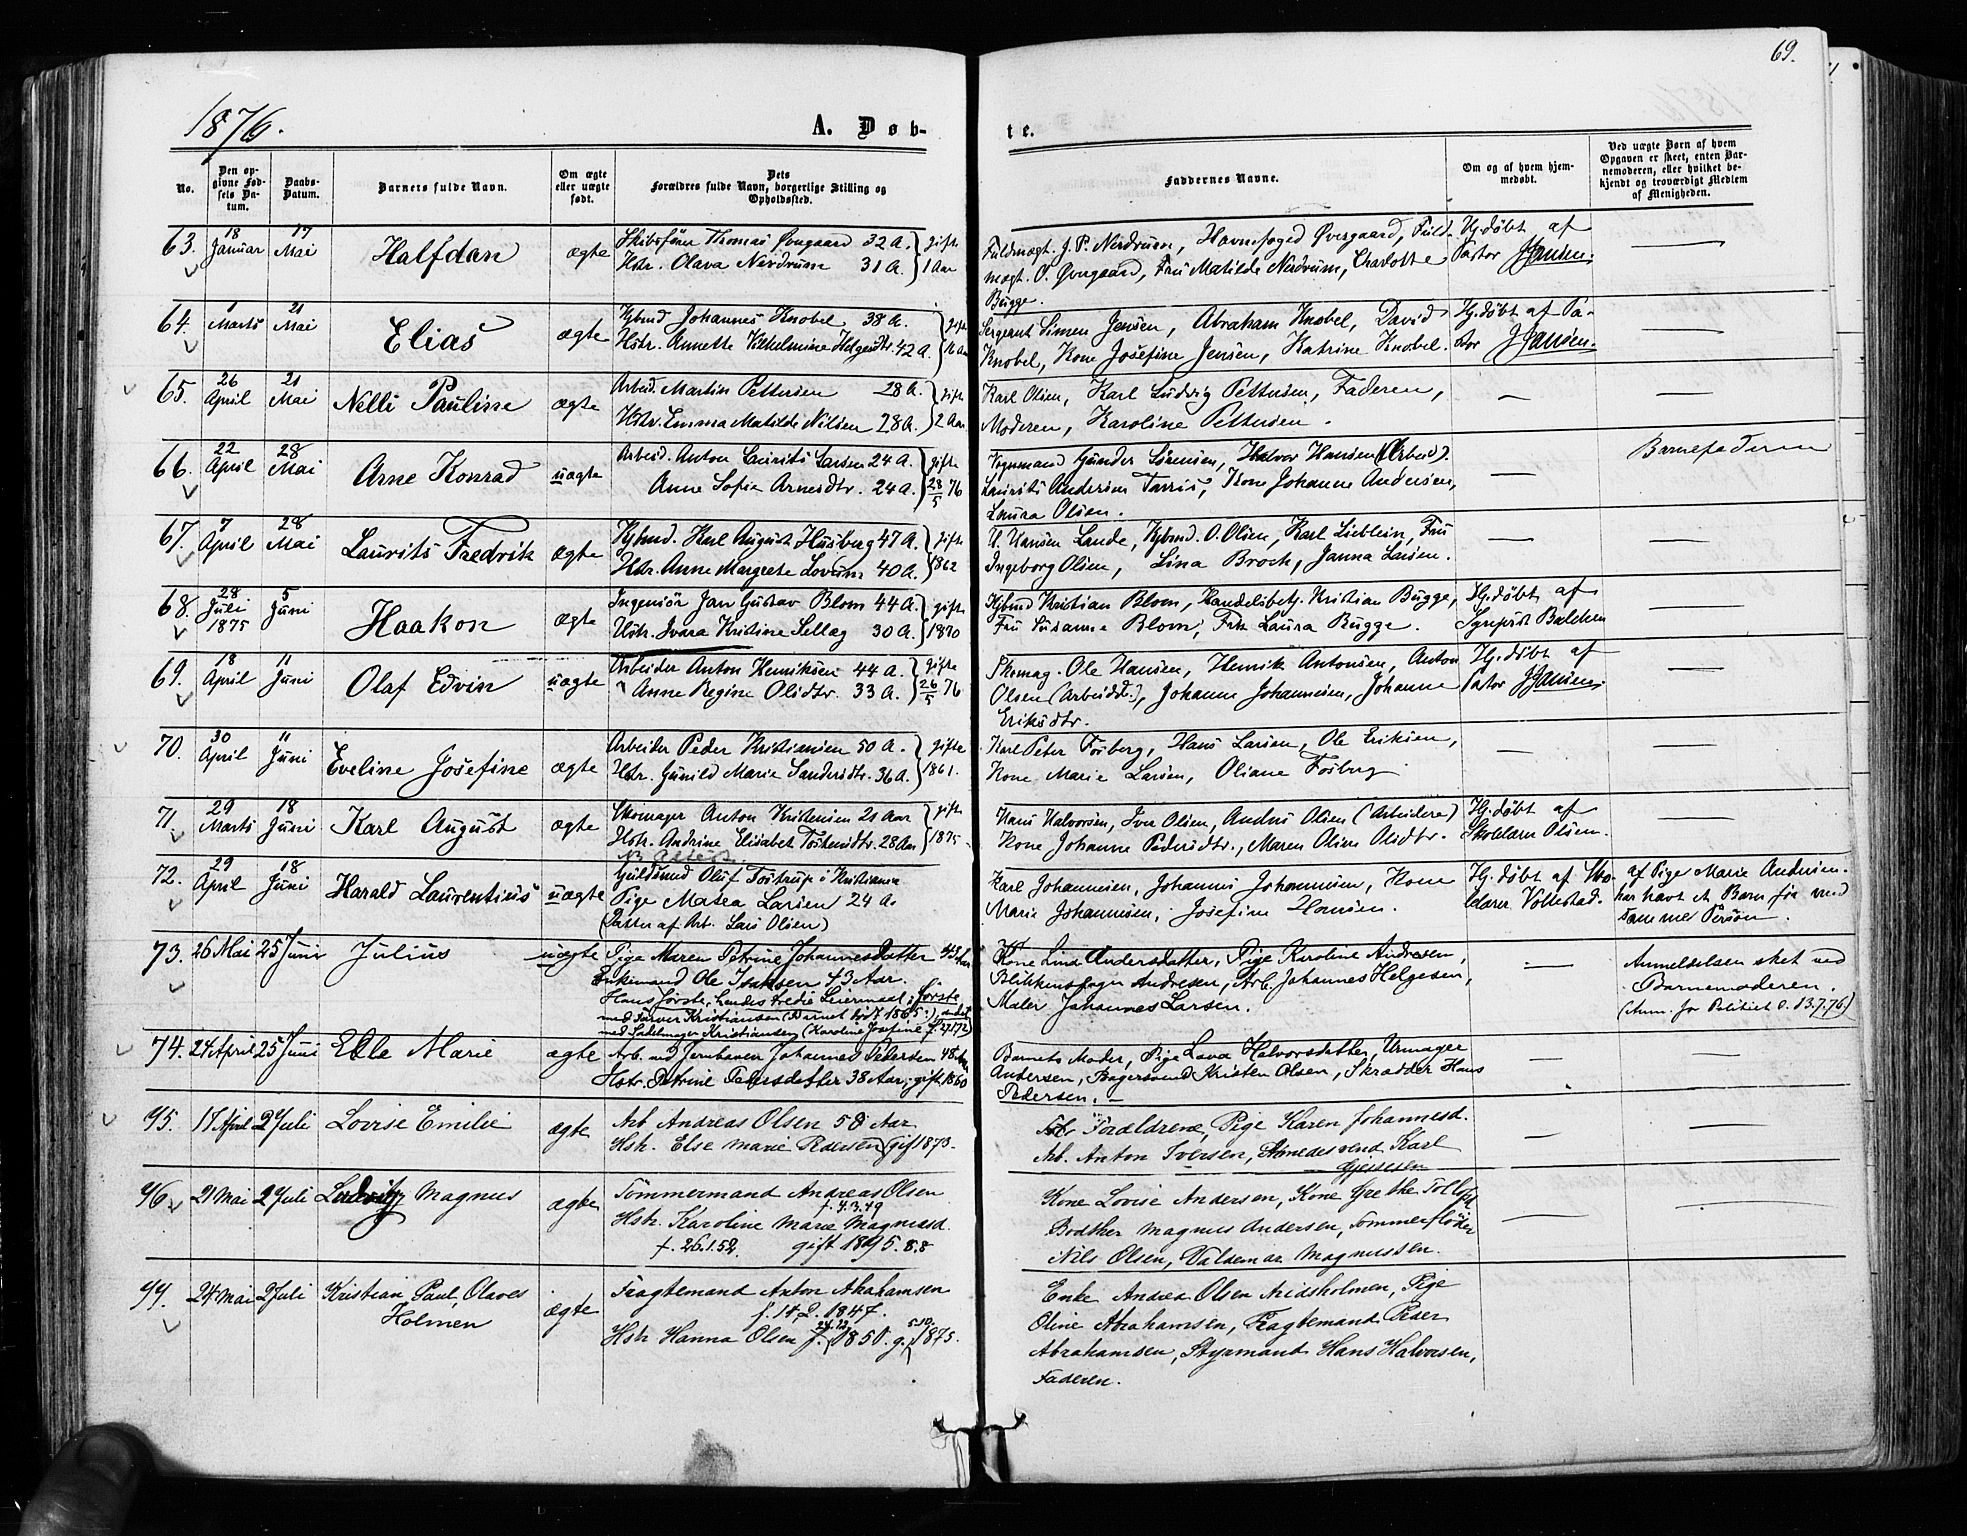 69.
1876.
A. Døb-
te.
No.
Den opgivne Fødsels Datum.
Daabs-Datum.
Barnets fulde Navn.
Om ægte eller uægte født.
Dets Forældres fulde Navn, borgerlige Stilling og Opholdssted.
Faddernes Navne.
Om og af hvem hjemmedøbt.
Ved uægte Børn af hvem Opgaven er skeet, enten Barnemoderen, eller hvilket bekjendt og troværdigt Medlem af Menigheden.
63. 18 Januar 17 Mai Halfdan ægte
Skibsfører Thomas Øvrgaard 32 A. gift
Hstr. Olava Nerdrum 31 A. 1 Aar
Fuldmægt. J. P. Nerdrum, Havnefoged Øvergaard, Fuld-
mægt. O. Øvrgaard, Fru Matilde Nerdrum, Charlotte
Bugge.
Hj. døbt af
Pastor J Jansen.
64. 1 Marts 21 Mai Elias ægte
Kjbmd Johannes Knobel 38 A. gift
Hstr. Annette Vilhelmine Helgesdtr. 42 A. 16 Aar
Sergeant Simen Jensen, Abraham Knobel, David
Knobel, Kone Josefine Jensen, Katrine Knobel.
Hj. døbt af Pa-
stor J Jansen.
65. 26 April 21 Mai Nelli Pauline ægte
Arbeid. Martin Pettersen 28 A. gift
Hstr. Emma Matilde Nilsen 28 A. 2 Aar
Karl Olsen, Karl Ludvig Pettersen, Faderen,
Moderen, Karoline Pettersen.
66. 22 April 28 Mai Arne Konrad uægte
Arbeid. Anton Laurits Larsen 24 A. gift
Anne Sofie Arnesdtr. 24 A. 28/5 76
Vognmand Gunder Sørensen, Halvor Hansen (Arbeid).
Laurits Andersen Tarris, Kone Johanne Andersen,
Laura Olsen.
Barnefaderen
67. 7 April 28 Mai Laurits Fredrik ægte
Kjbmd. Karl August Husberg 47 A. gift
Hstr. Anne Margrete Lovum 40 A. 1862
H Hansen Lande, Kjbmd. O. Olsen, Karl Lieblein, Fru
Ingeborg Olsen, Lina Broch, Janna Larsen.
68. 28 Juli 1875 5 Juni Haakon ægte
Ingeniør Jan Gustav Blom 44 A. gift
Hstr. Ivara Kristine Sellæg 30 A. 1870
Kjbmd Kristian Blom, Handelsbetj. Kristian Bugge,
Fru Susanne Blom, Frk Laura Bugge.
Hj. døbt af
Sgnprst Balchen
69. 18 April 11 Juni Olaf Edvin uægte
Arbeider Anton Henriksen 44 A. gift
Anne Regine Olsdtr. 33 A. 26/5 76
Skomag. Ole Hansen, Henrik Antonsen, Anton
Olsen (Arbeidd.), Johanne Johannesen, Johanne
Eriksdtr.
Hj. døbt af
Pastor J Jansen.
70. 30 April 11 Juni Eveline Josefine ægte
Arbeider Peder Kristiansen 50 A. gift
Hstr. Gunild Marie Sandersdtr. 36 A. 1861.
Karl Peter Fosberg, Hans Larsen, Ole Eriksen,
Kone Marie Larsen, Oliane Fosberg
71. 29 Marts 18 Juni Karl August ægte
Skomager Anton Kristensen 21 Aar gift
Hstr. Andrine Elisabet Tostensdtr. 28 Aar 1875.
Hans Halvorsen, Iver Olsen, Anders Olsen (Arbeidere)
Kone Johanne Pedersdtr., Maren Oline Olsdtr.
Hj. døbt af
Skolelærer Olsen.
72. 29 April 18 Juni Harald Laurentius uægte
Guldsmd Oluf Tostrup i Kristiania
Pige Matea Larsen 24 A.
(Datter af Arb. Lars Olsen)
Karl Johannesen, Johannes Johannesen, Kone
Marie Johannesen, Josefine Hansen.
Hj. døbt af Sko-
lelærer Vollestad.
af Pige Marie Andersen.
har havt et Barn før med
samme Person.
73. 26 Mai 25 Juni Julius uægte
Pige Maren Petrine Johannesdatter 43 Aar
Enkemand Ole Isaksen 43 Aar.
Hans første, hendes tredie Leiermaal; første
med Farver Kristiansen (Barnet født 1865), andet
med Sadelmager Kristiansen (Karoline Josefine f. 27 1 72)
Kone Lina Andersdatter, Pige Karoline Andresen,
Blikkenslager Andresen, Arb. Johannes Helgesen,
Maler Johannes Larsen.
Anmeldelsen sket ved
Barnemoderen.
(Anm. for Politiet d. 13.7.76)
74. 24 April 25 Juni Elle Marie ægte
Arb. ved Jernhaven Johannes Pedersen 48 Aar
Hstr. Petrine Pedersdatter 38 Aar; gift 1860
Barnets Moder, Pige Lava Halvorsdatter, Urmager
Andersen, Bagersvend Kristen Olsen, Skrædder Hans
Pedersen.
75. 17 April 2 Juli Lovise Emilie ægte
Arb. Andreas Olsen 50 Aar
Hstr. Else Marie Pedersen gift 1873.
Forældrene, Pige Karen Johannesd.
Arb. Anton Iversen, Smedesvend Karl
Gjessesen
76. 21 Mai 2 Juli Ludvig Magnus ægte
Tømmermand Andreas Olsen
f. 4.3.49
Hstr. Karoline Marie Magnusd.
f. 26.1.52. gift 1875. 8.8
Kone Lovise Andersen, Kone Grethe Tollefs
Bødtker Magnus Andersen, Tømmerfløder
Nils Olsen, Valdemar Magnussen.
77. 24 Mai 2 Juli Kristian Paul Olaves
Holmen ægte
Fragtemand Anton Abrahamsen
f. 14.2.1847.
Hstr Hanna Olsen f. 24/12 1850. g. 5.10. 1875.
Enke Andrea Olsen Midsholmen, Pige
Oline Abrahamsen, Fragtemand Peder
Abrahamsen, Styrmand Hans Halvorsen,
Faderen.